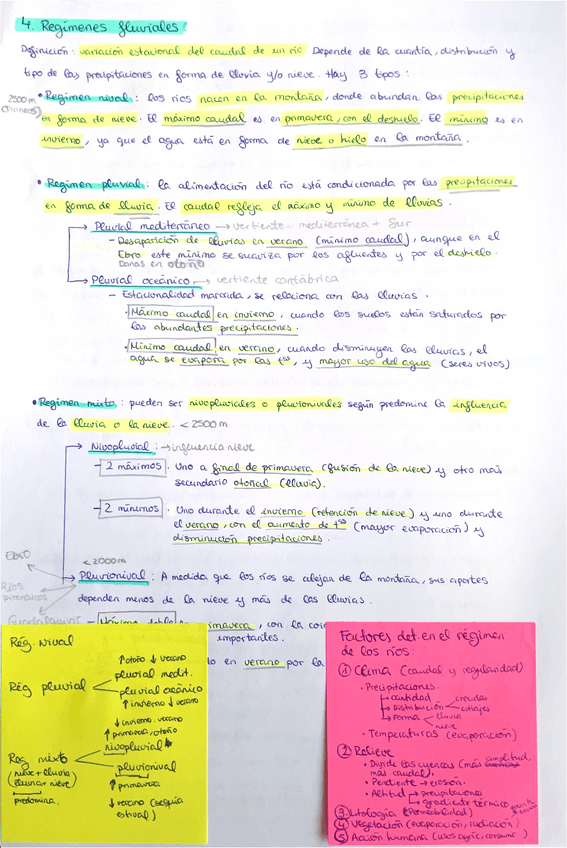 4. Regímenes fluviales
Definición: variación estacional del caudal de un río Depende de la cuantía, distribución y
tipo de las precipitaciones en forma de lluvia y/o nieve. Hay 3 tipos:
2500m
(Pirineos)
• Regimen nival: los ríos nacen en la montaña, donde abundan las precipitaciones
en forma de nieve. El máximo caudal es en primavera, con el deshielo. El mínimo es en
invierno, ya que el agua está en forma de nieve o hielo en la montaña.
• Regimen pluvial: la alimentación del río está condicionada por las precipitaciones
en forma de lluvia. El caudal refleja el máximo y mínimo de lluvias.
→ Pluvial mediterráneo → vertiente mediterránea + sur
- Desaparición de lluvias en verano (mínimo caudal), aunque en el
Ebro este mínimo se suaviza por los afluentes y por el deshielo.
Danas en otoño
→ Pluvial oceánico → vertiente cantábrica
- Estacionalidad marcada, se relaciona con las lluvias.
· Máximo caudal en invierno, cuando los suelos están saturados por
las abundantes precipitaciones.
· Mínimo caudal en verano, cuando disminuyen las lluvias, el
agua se evapora por las tªs, y mayor uso del agua (seres vivos)
• Regimen mixto: pueden ser nivopluviales o pluvionivales según predomine la influencia
de la lluvia o la nieve. < 2500m
→ Nivopluvial: → influencia nieve
- 2 máximos. Uno a final de primavera (fusión de la nieve) y otro más
secundario otoñal (lluvia).
- 2 mínimos. Uno durante el invierno (retención de nieve) y uno durante
el verano, con el aumento de tªs (mayor evaporación) y
disminución precipitaciones.
Ebro
< 2000m
Ríos
pirenaicos
→ Pluvionival: A medida que los ríos se alejan de la montaña, sus aportes
dependen menos de la nieve y más de las lluvias.
, con la
importantes.
en verano por la
Rég. nival
Rég pluvial
↑ otoño ↓ verano
pluvial medit.
pluvial oceánico
↑ invierno ↓ verano
Reg mixto
(nieve + lluvia)
(lluvia + nieve)
predomina.
↓ invierno, verano
↑ primavera, otoño
nivopluvial
pluvionival
↑ primavera
↓ verano (sequía
estival)
Factores det. en el régimen
de los ríos:
① Clima (caudal y regularidad)
· Precipitaciones
→ cantidad
→ Distribución
crecidas
estiajes
→ Forma
lluvia
nieve
· Temperaturas (evaporación)
② Relieve
· Divide las cuencas (más amplitud,
más caudal).
· Pendiente → erosión.
· Altitud → precipitaciones
→ gradiente térmico
③ Litología (Permeabilidad)
④ Vegetación (evaporación, radiación)
⑤ Acción humana (usos agríc, consumo)